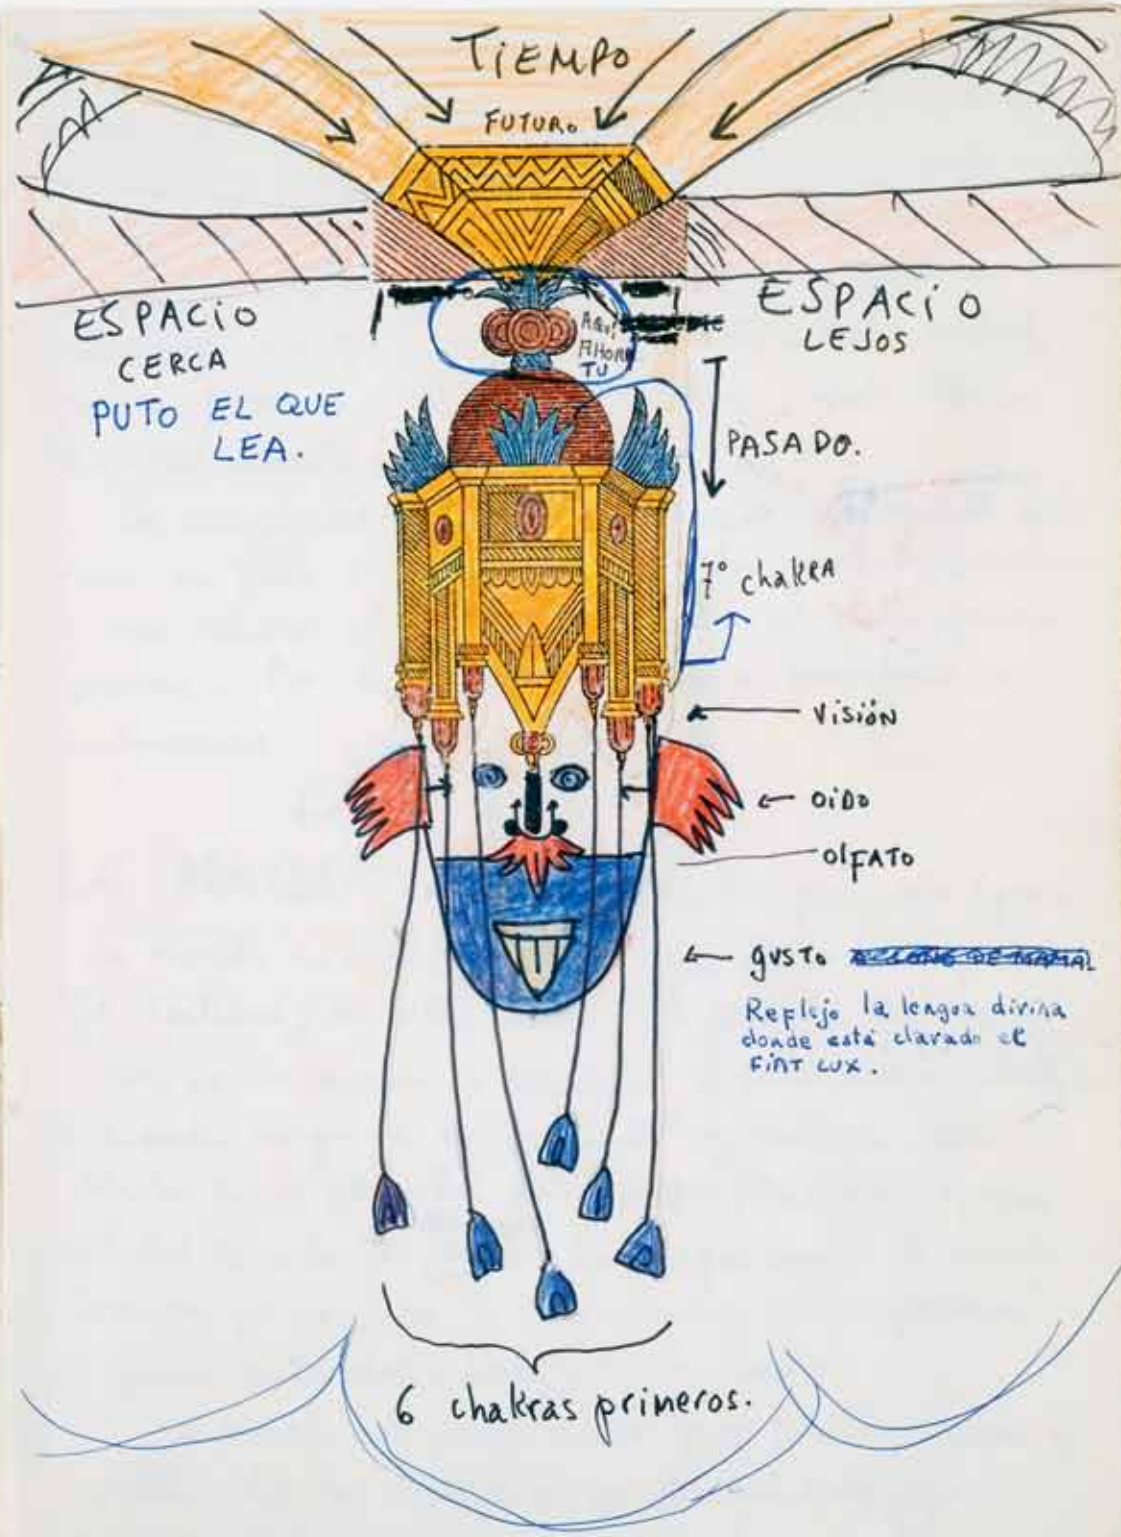 TIEMPO
FUTURO
ESPACIO
CERCA
PUTO EL QUE
LEA.
AQUÍ
AHORA
TU
ESPACIO
LEJOS
PASADO.
7° chakRA
VISIÓN
OIDO
OLFATO
gUSTO
Reflejo la lengua divina
donde está clavado el
FIAT LUX.
6 chakras primeros.